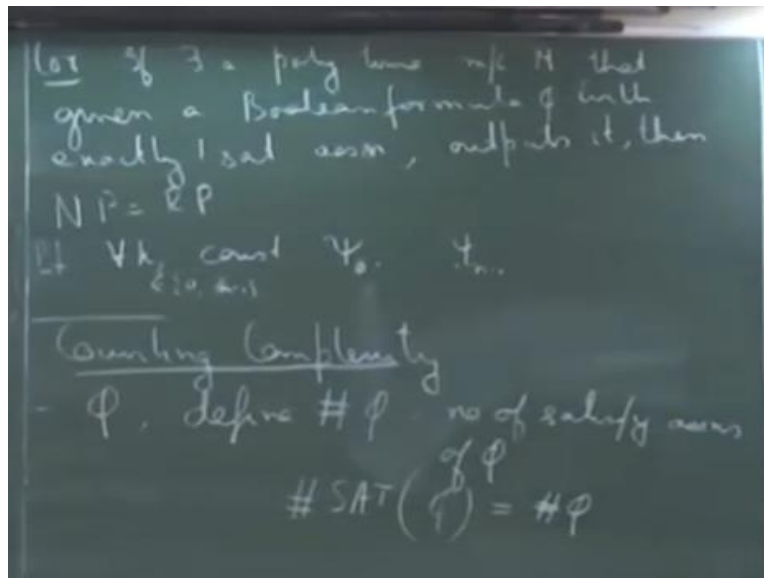 Cor If ∃ a poly time m/c M that
given a Boolean formula φ with
exactly 1 sat assn, outputs it, then
NP = RP
Pf ∀k, const Ψ₀. Ψₙ..
Counting Complexity
- φ, define #φ no of satisfy assns
of φ
#SAT(φ) = #φ